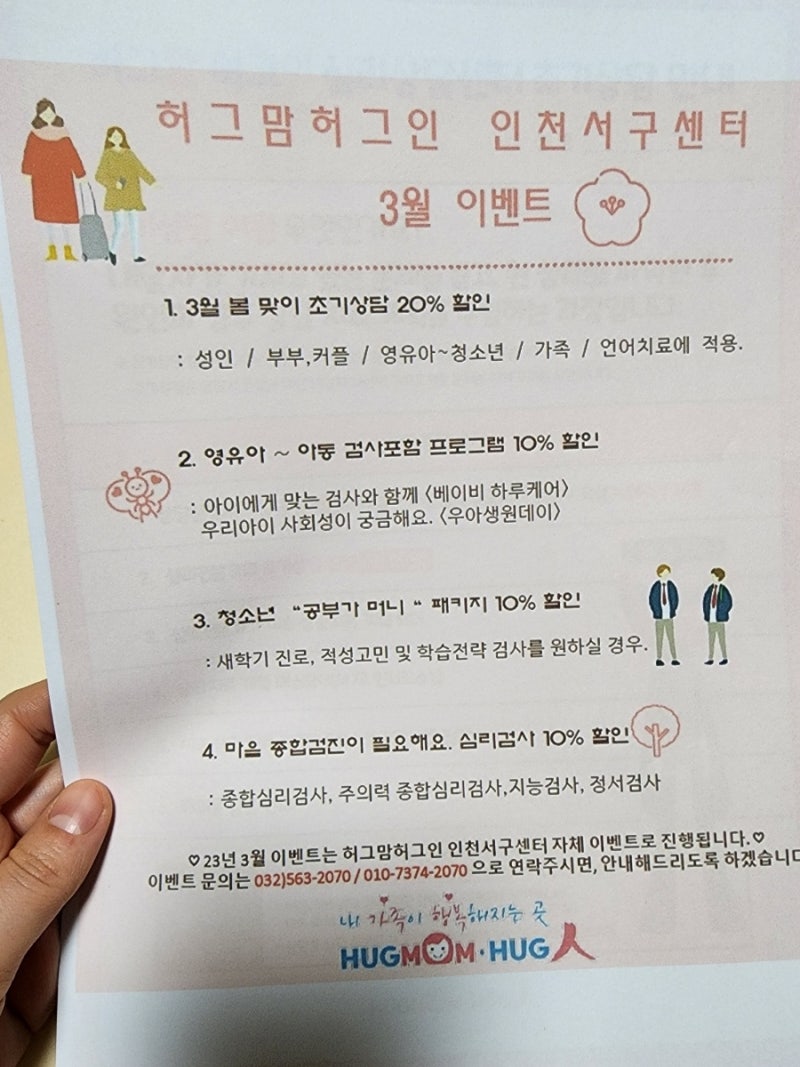 허그맘허그인 인천서구센터
3월 이벤트
1. 3월 봄 맞이 초기상담 20% 할인
: 성인 / 부부,커플 / 영유아~청소년 / 가족 / 언어치료에 적용.
2. 영유아 ~ 아동 검사포함 프로그램 10% 할인
: 아이에게 맞는 검사와 함께 〈베이비 하루케어〉
우리아이 사회성이 궁금해요. 〈우아생원데이〉
3. 청소년 “공부가 머니 “ 패키지 10% 할인
: 새학기 진로, 적성고민 및 학습전략 검사를 원하실 경우.
4. 마음 종합검진이 필요해요. 심리검사 10% 할인
: 종합심리검사, 주의력 종합심리검사,지능검사, 정서검사
♡ 23년 3월 이벤트는 허그맘허그인 인천서구센터 자체 이벤트로 진행됩니다.♡
이벤트 문의는 032)563-2070 / 010-7374-2070 으로 연락주시면, 안내해드리도록 하겠습니다
내 가족이 행복해지는 곳
HUGMOM·HUG人